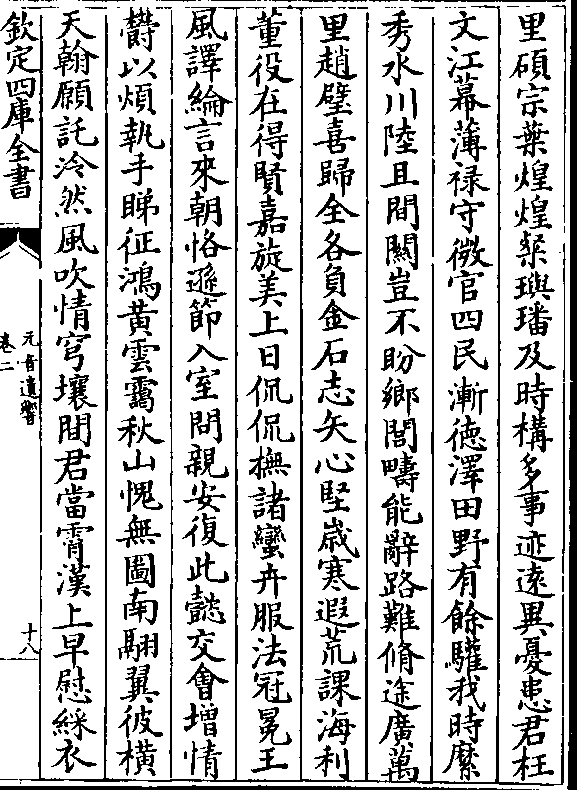 里碩宗葉煌煌粲璵璠及時構多事迹遠異憂患君枉
文江幕薄祿守微官四民漸徳澤田野有餘驩我時縻
秀水川陸且間關豈不盼鄉閭疇能辭路難脩途廣萬
里趙璧喜歸全各負金石志矢心堅歲寒遐荒課海利
董役在得賢嘉旋美上日侃侃撫諸蠻卉服法冠冕王
風譯綸言來朝恪遜節入室問親安復此懿交會增情
欝以煩執手睇征鴻黃雲靄秋山愧無圖南翮翼彼橫
天翰願託泠然風吹情穹壤間君當霄漢上早慰綵衣
欽定四庫全書
元音遺響
卷二
十八